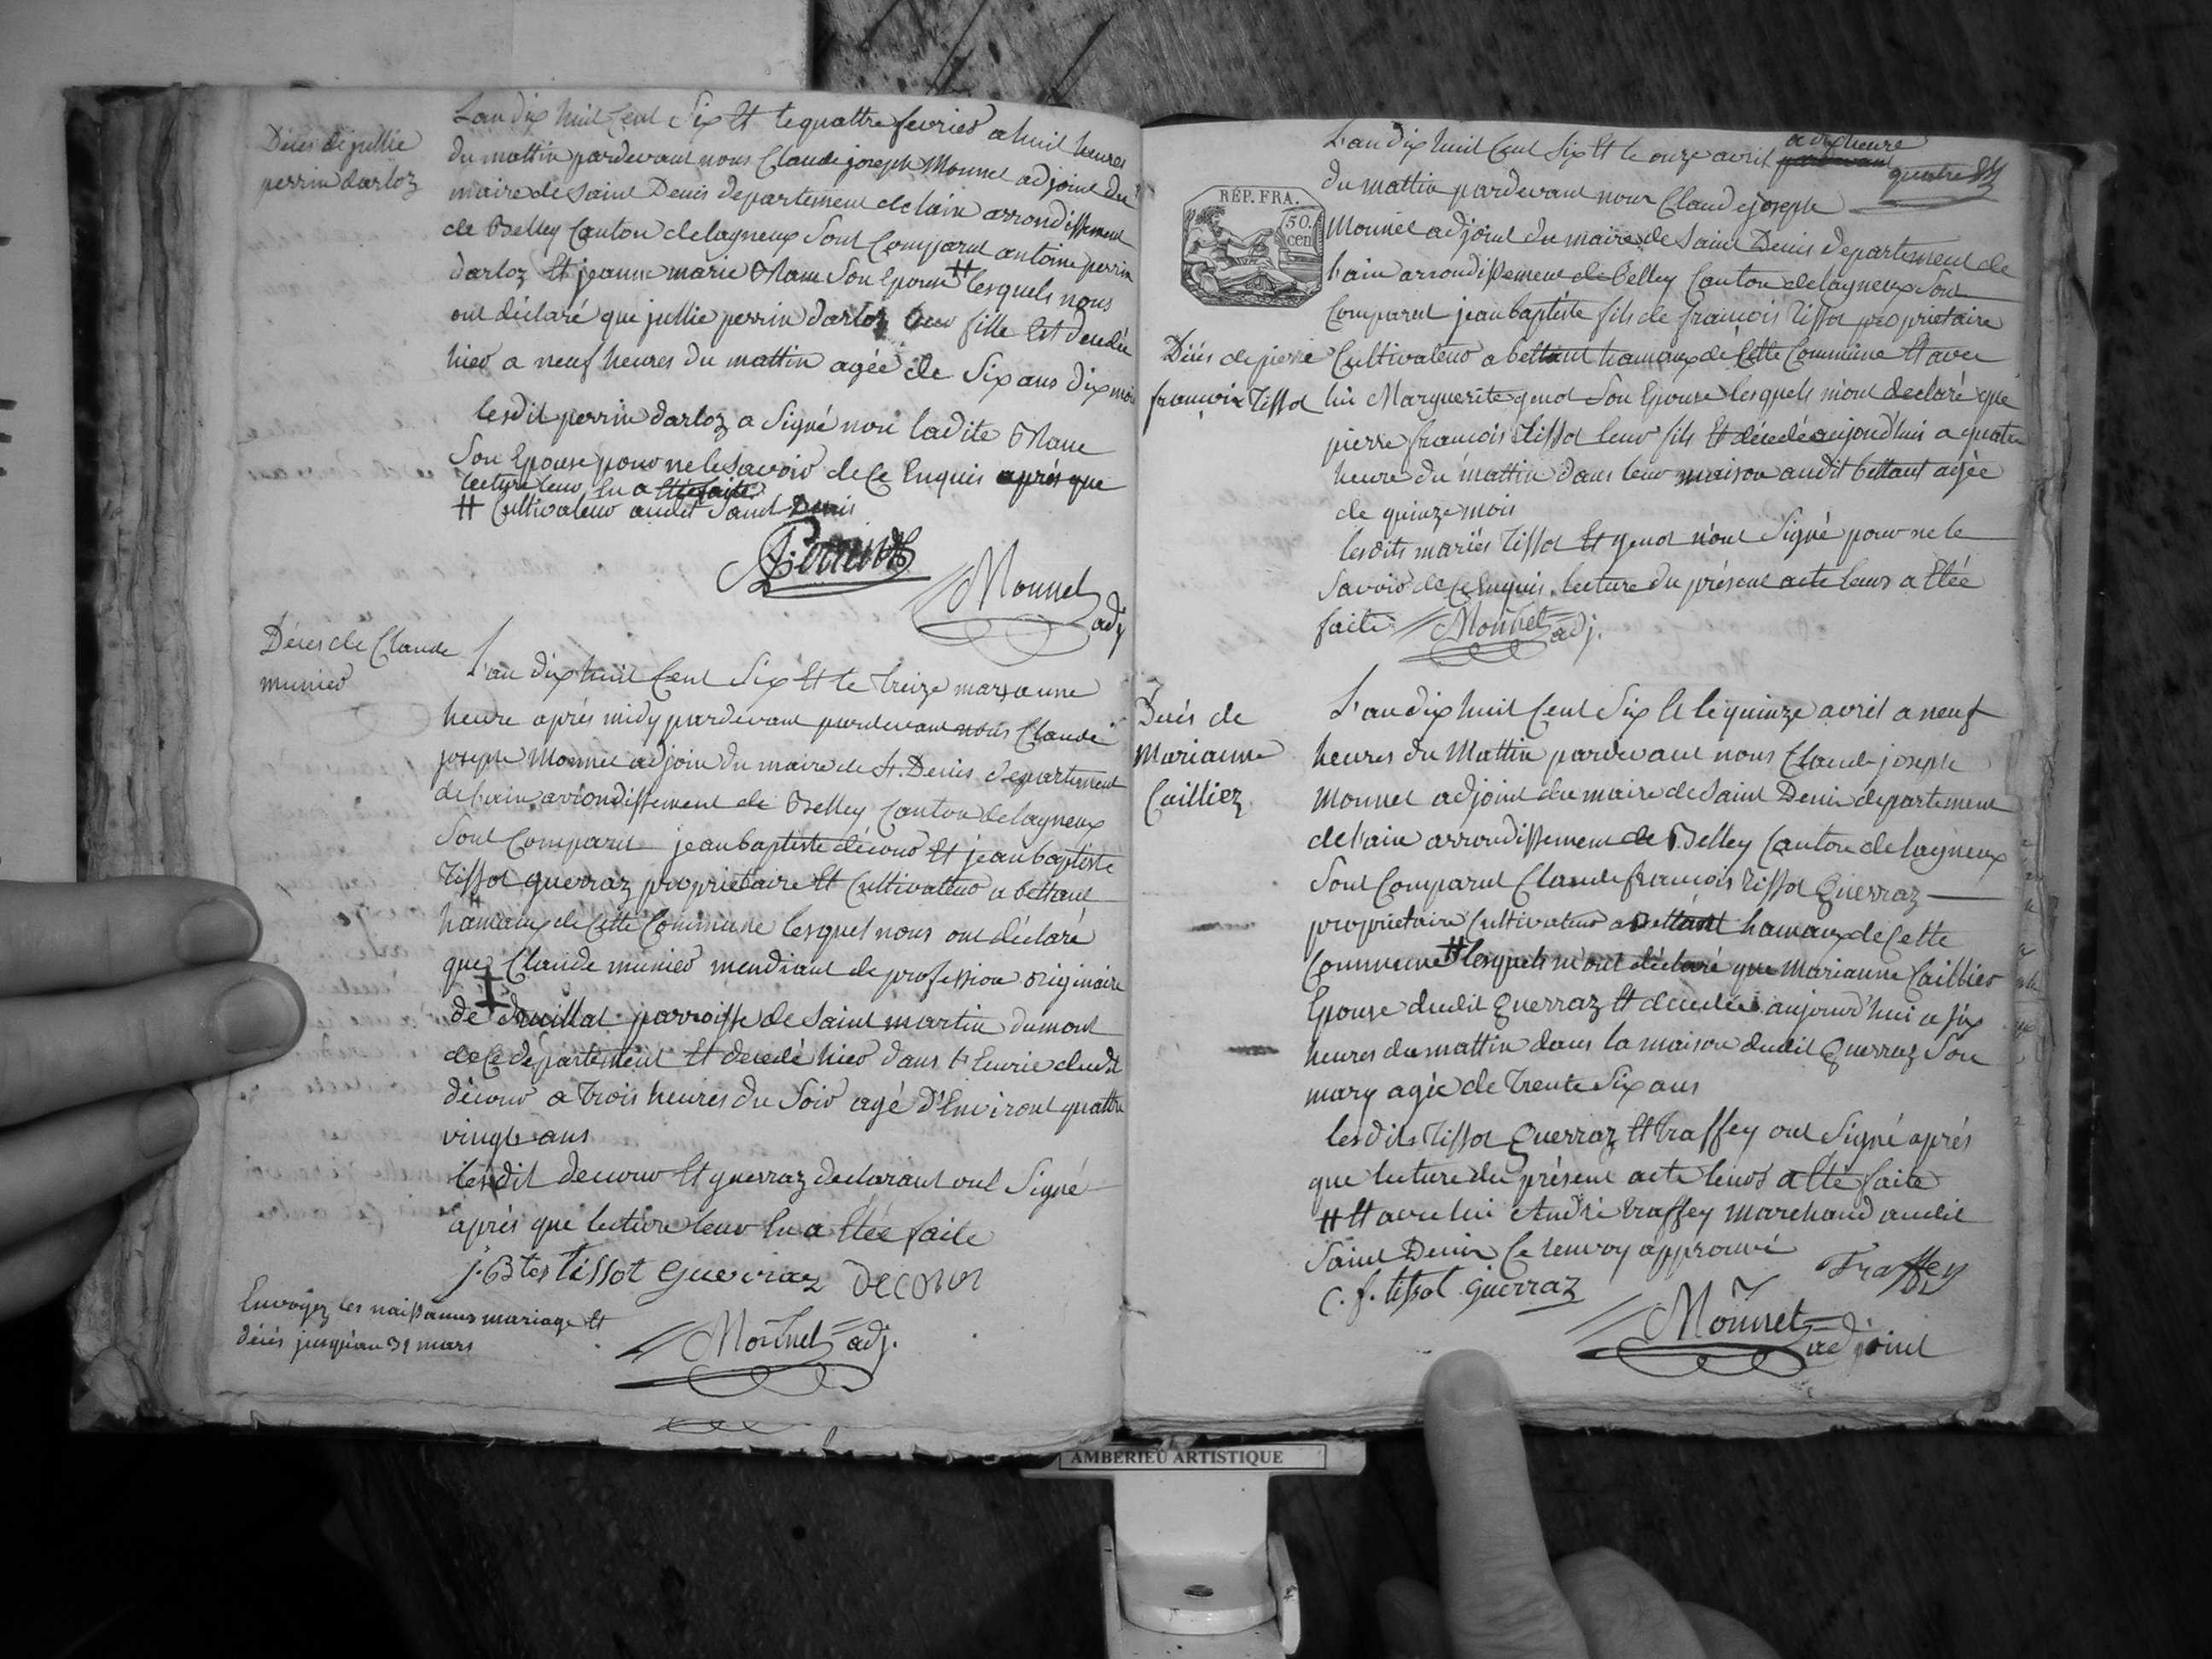 Décès de jullie
perrin darloz
L'an dix huit Cent Six Et le quattre fevrier a huit heures
du mattin pardevant nous Claude joseph Monnet adjoint du
maire de saint Denis departement de l'ain arrondissement
de Belley Canton de lagneux Sont Comparut antoine perrin
darloz Et jeanne marie Son Epouse # lesquels nous
ont déclaré que jullie perrin darloz leur fille Est décedée
hier a neuf heures du mattin agée de Six ans dix mois
lesdit perrin darloz a Signé non ladite
Son Epouse pour ne le Savoir de Ce Enquis après que
lecture leur En a Etté faite
# Cultivateur audit Saint Denis
Monnet
adj
Décès de Claude
munier
L'an dix huit Cent Six Et le treize mars a une
heure après midy pardevant pardevant nous Claude
joseph Monnet adjoin du maire de St. Denis departement
de l'ain arrondissement de Belley Canton de lagneux
Sont Comparut jean baptiste décour Et jean baptiste
Tissot guerraz propriétaire Et Cultivateur a bettant
hamaux de Cette Commune lesquel nous ont déclaré
que Claude munier mendiant de profession originaire
de Druillat parroisse de Saint martin dumont
de Ce departement Et decedé hier dans l'Eurie dudit
décour a trois heures du Soir agé d'Environt quattre
vingts ans
lesdit decour Et guerraz declarant ont Signé
après que lecture leur En a Etée faite
j. Btes tissot guerraz Decour
Envoyez les naissances mariage Et
décés jusqu'au 31 mars
Monnet adj.
L'an dix huit Cent Six Et le onze avril pardevant a dix heure
du mattin pardevant nous Claude joseph
RÉP. FRA.
50.
cen
Monnet adjoint du maire de Saint Denis departement de
l'ain arrondissement de Belley Canton de lagneux Sont
Comparut jean baptiste fils de francois Tissot propriétaire
Décés de pierre
françoix Tissot
Cultivateur a bettant hamaux de Cette Commune Et avec
lui Marguerite genot Son Epouse lesquels m'ont declaré que
pierre francois Tissot leur fils Et décedé aujourd'hui a quatre
heure du mattin dans leur maison audit bettant agée
de quinze mois
lesdits mariés Tissot Et genot n'ont Signé pour ne le
Savoir de Ce Enquis lecture du présent acte leurs a Etée
faite Monnet adj.
Décés de
Marianne
Cailliez
L'an dix huit Cent Six Et le quinze avril a neuf
heures du Mattin pardevant nous Claude joseph
Monnet adjoint du maire de Saint Denis departement
de l'ain arrondissement de Belley Canton de lagneux
Sont Comparut Claude francois Tissot Guerraz
propriétaire Cultivateur a Bettant hamaux de Cette
Commune # lesquels m'ont déclaré que Marianne Caillier
Epouse dudit Guerraz Et decedée aujourd'hui a six
heures du mattin dans la maison dudit Guerraz Son
mary agée de Trente Six ans
lesdits Tissot Guerraz Et traffey ont Signé après
que lecture du présent acte leurs a Eté faite
# Et avec lui André traffey marchand audit
Saint Denis Ce renvoy approuvé
Traffey
C. f. tissot guerraz
Monnet
adjoint
AMBERIEU ARTISTIQUE